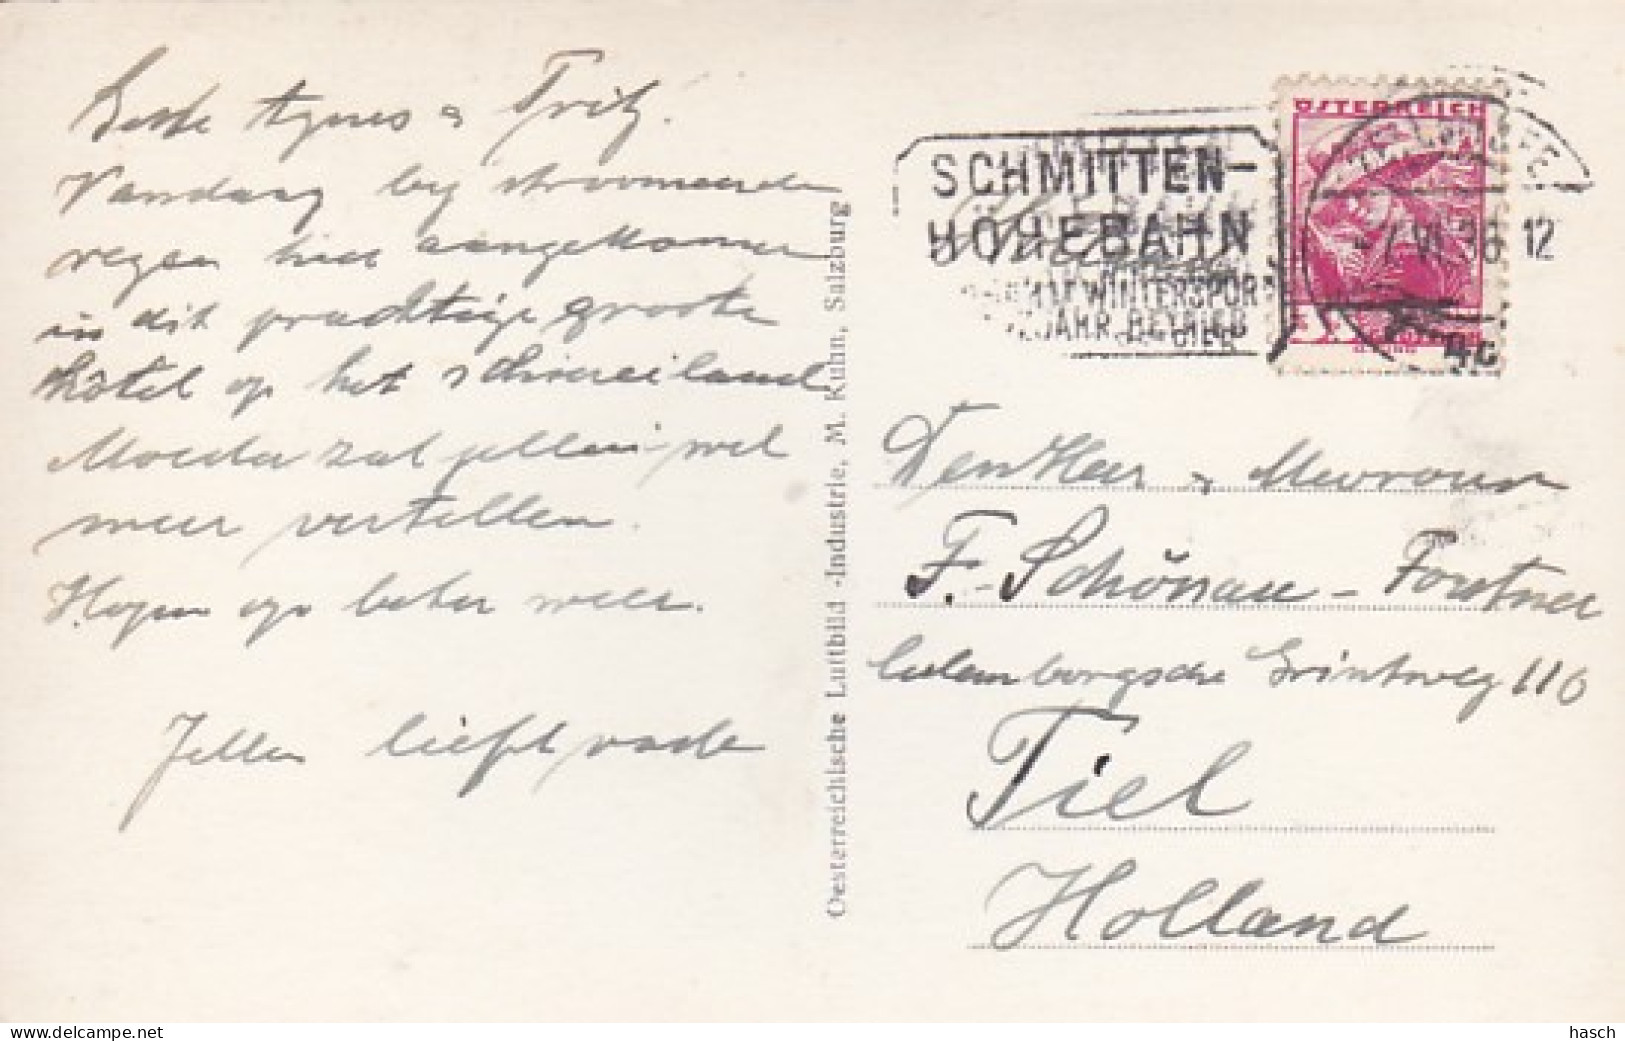 Beste Agnes & Fritz.
Vandaag by stroomenden
regen hier aangekomen
in dit prachtige groote
hôtel op het schiereiland
Moeder zal jullie wel
meer vertellen.
Hopen op beter weer.
Jullie liefh. vader
Oesterreichische Luftbild-Industrie, M. Kuhn, Salzburg
SCHMITTEN-
HÖHEBAHN
WINTERSPORT
JAHR BETRIEB
ÖSTERREICH
VI.36 12
4c
Den Heer & Mevrouw
F. Schönau-Forstner
Culemborgsche Grintweg 116
Tiel
Holland
hasch
www.delcampe.net